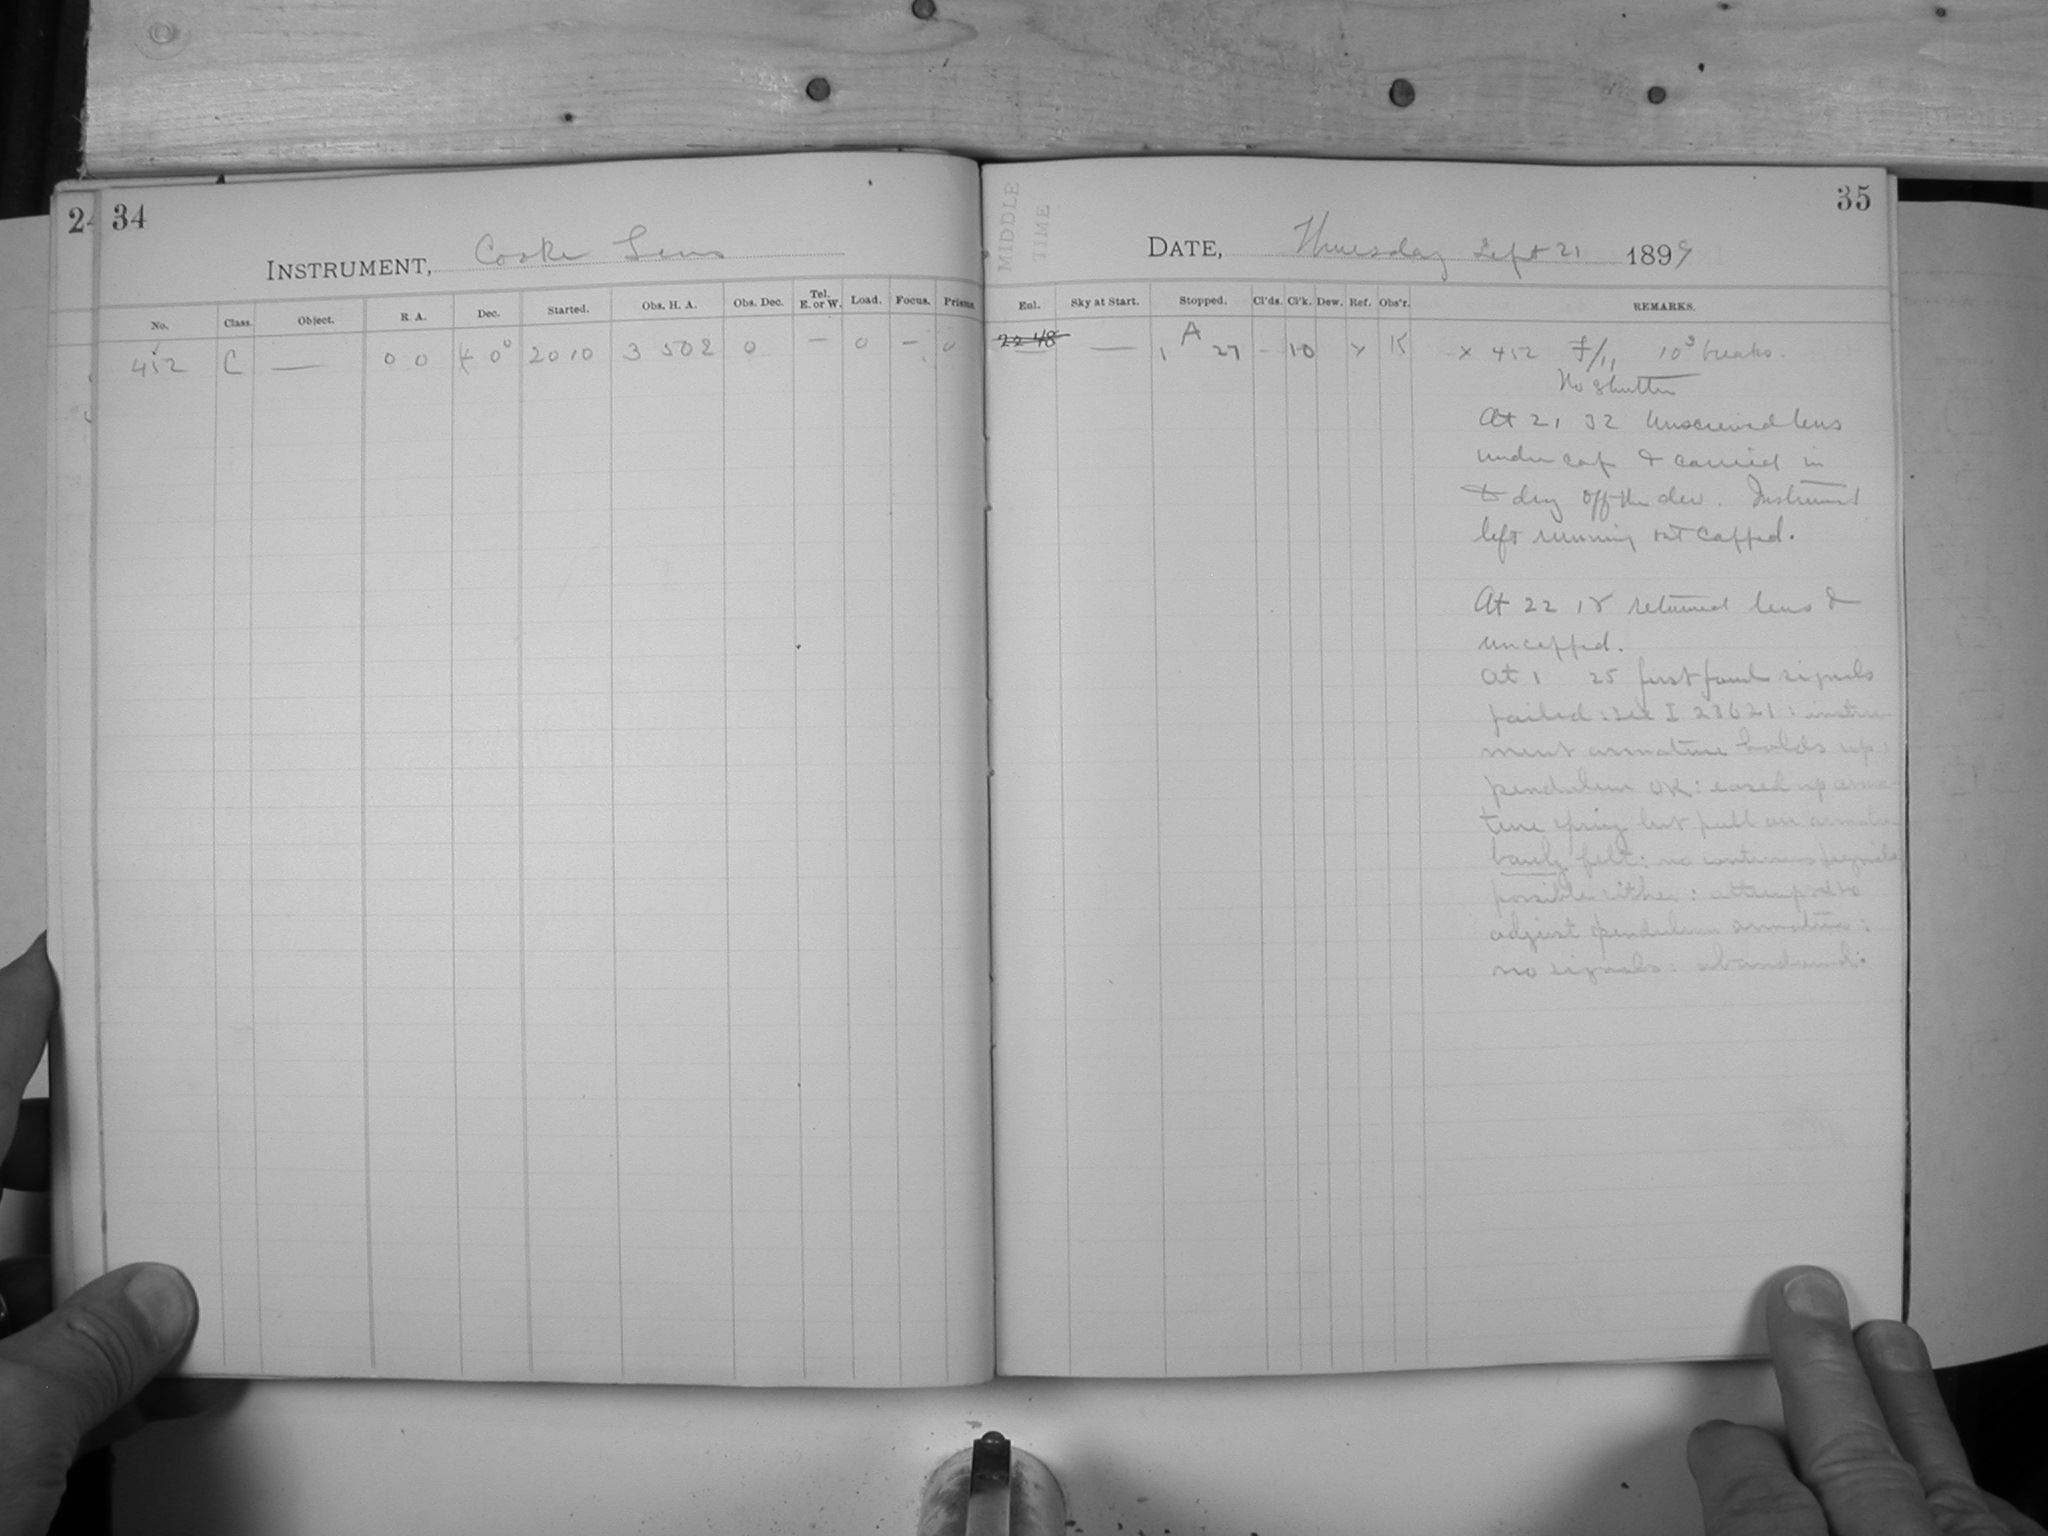 24 34
INSTRUMENT, Cooke Lens
No. Class. Object. R. A. Dec. Started. Obs. H. A. Obs. Dec. Tel. E. or W. Load. Focus. Prisms.
412 C — 0 0 + 0° 20 10 3 50 2 0 — 0 — 0
MIDDLE
TIME
35
DATE, Thursday Sept 21 1899
Eul. Sky at Start. Stopped. Cl'ds. Cl'k. Dew. Ref. Obs'r. REMARKS.
22 48 — 1 A 27 – 10 x K x 412 F/11 10s breaks.
No shutter
At 21 32 Unscrewed lens
under cap & carried in
to dry off the dew. Instrument
left running but capped.
At 22 18 returned lens &
uncapped.
At 1 25 first found signals
failed: see I 23621: instru-
ment armature holds up:
pendulum OK: eased up arma-
ture spring but pull on armature
barely felt: no continuous signals
possible either: attempted to
adjust pendulum armature:
no signals: abandoned: